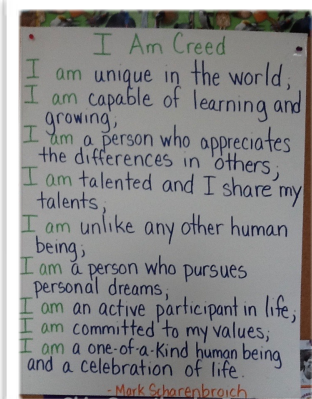 I Am Creed
I am unique in the world;
I am capable of learning and
growing;
I am a person who appreciates
the differences in others;
I am talented and I share my
talents;
I am unlike any other human
being;
I am a person who pursues
personal dreams;
I am an active participant in life;
I am committed to my values;
I am a one-of-a-kind human being
and a celebration of life.
- Mark Scharenbroich